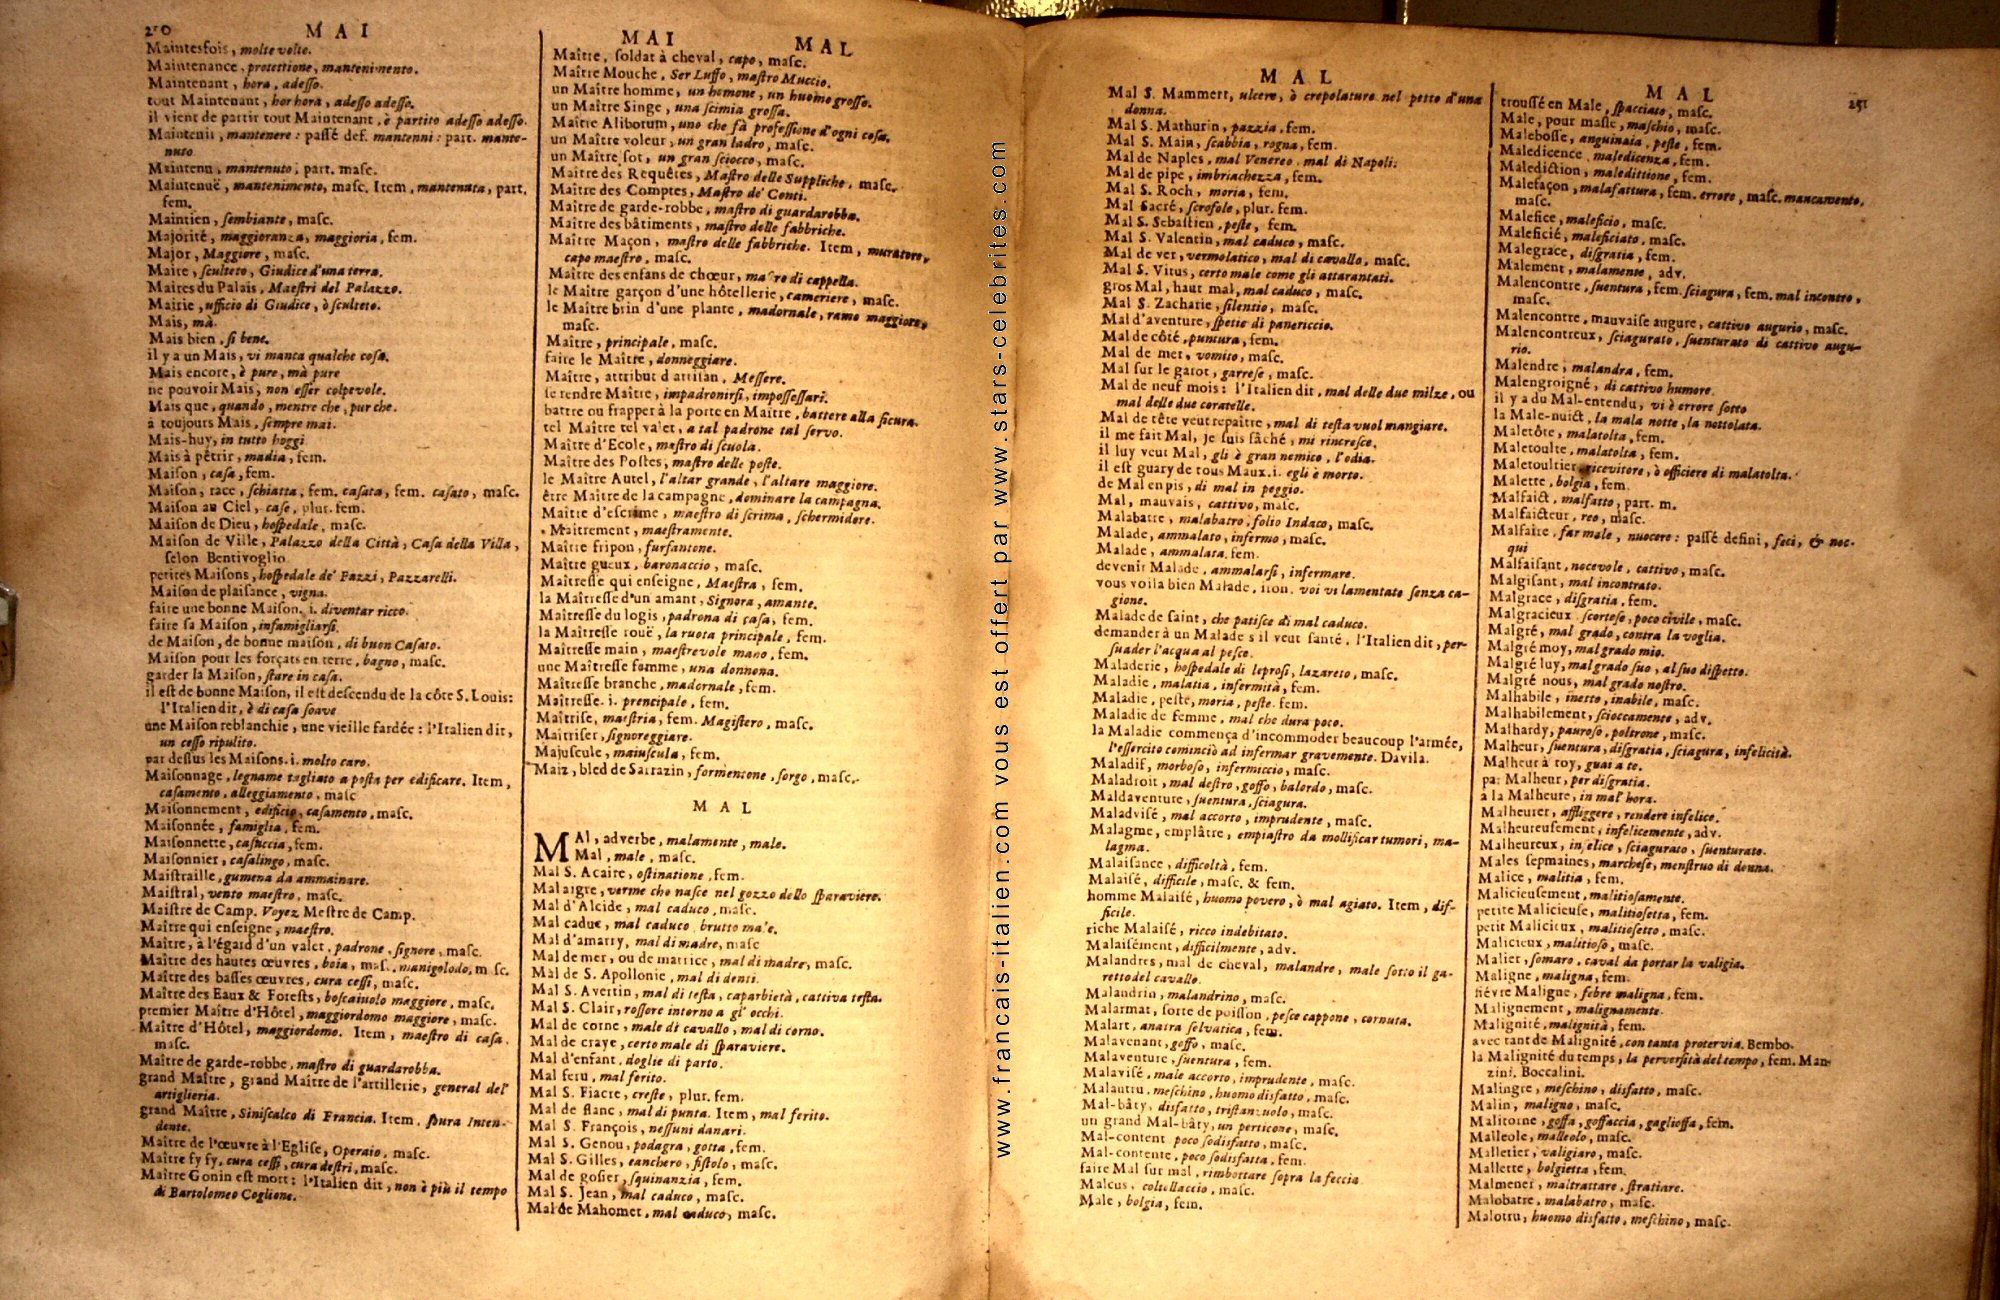 250 MAI
Maintesfois, molte volte.
Maintenance, protettione, mantenimento.
Maintenant, hora, adeſſo.
tout Maintenant, hor hora, adeſſo adeſſo.
il vient de partir tout Maintenant, è partito adeſſo adeſſo.
Maintenir, mantenere: paſſé def. mantenni: part. mante-
nuto.
Maintenu, mantenuto, part. maſc.
Maintenuë, mantenimento, maſc. Item, mantenuta, part.
fem.
Maintien, ſembiante, maſc.
Majorité, maggioranza, maggioria, fem.
Major, Maggiore, maſc.
Maire, ſculteto, Giudice d'una terra.
Maires du Palais, Maeſtri del Palazzo.
Mairie, ufficio di Giudice, ò ſculteto.
Mais, mà.
Mais bien, ſi bene.
il y a un Mais, vi manca qualche coſa.
Mais encore, è pure, mà pure
ne pouvoir Mais, non eſſer colpevole.
Mais que, quando, mentre che, pur che.
à toujours Mais, ſempre mai.
Mais-huy, in tutto hoggi
Mais à pêtrir, madia, fem.
Maiſon, caſa, fem.
Maiſon, race, ſchiatta, fem. caſata, fem. caſato, maſc.
Maiſon au Ciel, caſe, plur. fem.
Maiſon de Dieu, hoſpedale, maſc.
Maiſon de Ville, Palazzo della Città, Caſa della Villa,
ſelon Bentivoglio
petites Maiſons, hoſpedale de' Pazzi, Pazzarelli.
Maiſon de plaiſance, vigna.
faire une bonne Maiſon. i. diventar ricco.
faire ſa Maiſon, infamigliarſi.
de Maiſon, de bonne maiſon, di buon Caſato.
Maiſon pour les forçats en terre, bagno, maſc.
garder la Maiſon, ſtare in caſa.
il eſt de bonne Maiſon, il eſt deſcendu de la côte S. Louis:
l'Italien dit, è di caſa ſoave
une Maiſon reblanchie, une vieille fardée: l'Italien dit,
un ceſſo ripulito.
par deſſus les Maiſons. i. molto caro.
Maiſonnage, legname tagliato a poſta per edificare. Item,
caſamento, alleggiamento, maſc
Maiſonnement, edificio, caſamento, maſc.
Maiſonnée, famiglia, fem.
Maiſonnette, caſuccia, fem.
Maiſonnier, caſalingo, maſc.
Maiſtraille, gumena da ammainare.
Maiſtral, vento maeſtro, maſc.
Maiſtre de Camp. Voyez Meſtre de Camp.
Maître qui enſeigne, maeſtro.
Maître, à l'égard d'un valet, padrone, ſignore, maſc.
Maître des hautes œuvres, boia, maſ., manigoldo, m ſc.
Maître des baſſes œuvres, cura ceſſi, maſc.
Maître des Eaux & Foreſts, boſcaiuolo maggiore, maſc.
premier Maître d'Hôtel, maggiordomo maggiore, maſc.
Maître d'Hôtel, maggiordomo. Item, maeſtro di caſa.
maſc.
Maître de garde-robbe, maſtro di guardarobba.
grand Maître, grand Maître de l'artillerie, general del'
artiglieria.
grand Maître, Siniſcalco di Francia. Item, ſoura Inten-
dente.
Maître de l'œuvre à l'Egliſe, Operaio, maſc.
Maître fy fy, cura ceſſi, cura deſtri, maſc.
Maître Gonin eſt mort: l'Italien dit, non è più il tempo
di Bartolomeo Coglione.
MAI MAL
Maître, ſoldat à cheval, capo, maſc.
Maître Mouche, Ser Luffo, maſtro Muccio.
un Maître homme, un homone, un huomo groſſo.
un Maître Singe, una ſcimia groſſa.
Maître Aliborum, uno che fà profeſſione d'ogni coſa.
un Maître voleur, un gran ladro, maſc.
un Maître ſot, un gran ſciocco, maſc.
Maître des Requêtes, Maſtro delle Suppliche, maſc.
Maître des Comptes, Maſtro de' Conti.
Maître de garde-robbe, maſtro di guardarobba.
Maître des bâtiments, maſtro delle fabbriche.
Maître Maçon, maſtro delle fabbriche. Item, muratore,
capo maeſtro, maſc.
Maître des enfans de chœur, maſtro di cappella.
le Maître garçon d'une hôtellerie, cameriere, maſc.
le Maître brin d'une plante, madornale, ramo maggiore,
maſc.
Maître, principale, maſc.
faire le Maître, donneggiare.
Maître, attribut d'artiſan, Meſſere.
ſe rendre Maître, impadronirſi, impoſſeſſarſi.
battre ou frapper à la porte en Maître, battere alla ſicura.
tel Maître tel valet, a tal padrone tal ſervo.
Maître d'Ecole, meſtro di ſcuola.
Maître des Poſtes, maſtro delle poſte.
le Maître Autel, l'altar grande, l'altare maggiore.
être Maître de la campagne, dominare la campagna.
Maître d'eſcrime, maeſtro di ſcrima, ſchermidore.
Maîtrement, maeſtramente.
Maître fripon, furfantone.
Maître gueux, baronaccio, maſc.
Maîtreſſe qui enſeigne, Maeſtra, fem.
la Maîtreſſe d'un amant, Signora, amante.
Maîtreſſe du logis, padrona di caſa, fem.
la Maîtreſſe rouë, la ruota principale, fem.
Maîtreſſe main, maeſtrevole mano, fem.
une Maîtreſſe femme, una donnona.
Maîtreſſe branche, madornale, fem.
Maîtreſſe. i. prencipale, fem.
Maîtriſe, maeſtria, fem. Magiſtero, maſc.
Maîtriſer, ſignoreggiare.
Majuſcule, maiuſcula, fem.
Maiz, bled de Sarrazin, formentone, ſorgo, maſc.
MAL
MAl, adverbe, malamente, male.
Mal, male, maſc.
Mal S. Acaire, oſtinatione, fem.
Mal aigre, verme che naſce nel gozzo dello ſparaviere.
Mal d'Alcide, mal caduco, maſc.
Mal caduc, mal caduco, brutto male.
Mal d'amarry, mal di madre, maſc
Mal de mer, ou de matrice, mal di madre, maſc.
Mal de S. Apollonie, mal di denti.
Mal S. Avertin, mal di teſta, caparbietà, cattiva teſta.
Mal S. Clair, roſſore intorno a gl' occhi.
Mal de corne, male di cavallo, mal di corno.
Mal de craye, certo male di ſparaviere.
Mal d'enfant, doglie di parto.
Mal feru, mal ferito.
Mal S. Fiacre, creſte, plur. fem.
Mal de flanc, mal di punta. Item, mal ferito.
Mal S. François, neſſuni danari.
Mal S. Genou, podagra, gotta, fem.
Mal S. Gilles, canchero, fiſtolo, maſc.
Mal de goſier, ſquinanzia, fem.
Mal S. Jean, mal caduco, maſc.
Mal de Mahomet, mal caduco, maſc.
www.francais-italien.com vous est offert par www.stars-celebrites.com
MAL
Mal S. Mammert, ulcere, ò crepolature nel petto d'una
donna.
Mal S. Mathurin, pazzia, fem.
Mal S. Main, ſcabbia, rogna, fem.
Mal de Naples, mal Venereo, mal di Napoli.
Mal de pipe, imbriachezza, fem.
Mal S. Roch, moria, fem.
Mal Sacré, ſcrofole, plur. fem.
Mal S. Sebaſtien, peſte, fem.
Mal S. Valentin, mal caduco, maſc.
Mal de ver, vermolatico, mal di cavallo, maſc.
Mal S. Vitus, certo male come gli attarantati.
gros Mal, haut mal, mal caduco, maſc.
Mal S. Zacharie, ſilentio, maſc.
Mal d'aventure, ſpetie di panericcio.
Mal de côté, puntura, fem.
Mal de mer, vomito, maſc.
Mal ſur le garot, garreſe, maſc.
Mal de neuf mois: l'Italien dit, mal delle due milze, ou
mal delle due coratelle.
Mal de tête veut repaître, mal di teſta vuol mangiare.
il me fait Mal, je ſuis fâché, mi rincreſce.
il luy veut Mal, gli è gran nemico, l'odia.
il eſt guary de tous Maux. i. egli è morto.
de Mal en pis, di mal in peggio.
Mal, mauvais, cattivo, maſc.
Malabatre, malabatro, folio Indaco, maſc.
Malade, ammalato, infermo, maſc.
Malade, ammalata, fem.
devenir Malade, ammalarſi, infermare.
vous voila bien Malade, iron. voi vi lamentate ſenza ca-
gione.
Malade de ſaint, che patiſce di mal caduco.
demander à un Malade s'il veut ſanté, l'Italien dit, per-
ſuader l'acqua al peſce.
Maladerie, hoſpedale di leproſi, lazareto, maſc.
Maladie, malatia, infermità, fem.
Maladie, peſte, moria, peſte, fem.
Maladie de femme, mal che dura poco.
la Maladie commença d'incommoder beaucoup l'armée,
l'eſſercito cominciò ad infermar gravemente. Davila.
Maladif, morboſo, infermiccio, maſc.
Maladroit, mal deſtro, goffo, balordo, maſc.
Maldaventure, ſuentura, ſciagura.
Maladviſé, mal accorto, imprudente, maſc.
Malagme, emplâtre, empiaſtro da mollificar tumori, ma-
lagma.
Malaiſance, difficoltà, fem.
Malaiſé, difficile, maſc. & fem.
homme Malaiſé, huomo povero, ò mal agiato. Item, dif-
ficile.
riche Malaiſé, ricco indebitato.
Malaiſément, difficilmente, adv.
Malandres, mal de cheval, malandre, male ſotto il ga-
retto del cavallo.
Malandrin, malandrino, maſc.
Malarmat, ſorte de poiſſon, peſce cappone, cornuta.
Malart, anatra ſelvatica, fem.
Malavenant, goffo, maſc.
Malaventure, ſuentura, fem.
Malaviſé, male accorto, imprudente, maſc.
Malautru, meſchino, huomo disfatto, maſc.
Mal-bâty, disfatto, triſtanzuolo, maſc.
un grand Mal-bâty, un perticone, maſc.
Mal-content, poco ſodisfatto, maſc.
Mal-contente, poco ſodisfatta, fem.
faire Mal ſur mal, rimbottare ſopra la feccia
Malcus, coltellaccio, maſc.
Male, bolgia, fem.
MAL 251
trouſſé en Male, ſpacciato, maſc.
Male, pour maſle, maſchio, maſc.
Maleboſſe, anguinaia, peſte, fem.
Maledicence, maledicenza, fem.
Malediction, maledittione, fem.
Malefaçon, malafattura, fem. errore, maſc. mancamento.
maſc.
Malefice, maleficio, maſc.
Maleficié, maleficiato, maſc.
Malegrace, diſgratia, fem.
Malement, malamente, adv.
Malencontre, ſuentura, fem. ſciagura, fem. mal incontro,
maſc.
Malencontre, mauvaiſe augure, cattivo augurio, maſc.
Malencontreux, ſciagurato, ſuenturato di cattivo augu-
rio.
Malendre, malandra, fem.
Malengroigné, di cattivo humore.
il y a du Mal-entendu, vi è errore ſotto
la Male-nuict, la mala notte, la nottolata.
Maletôte, malatolta, fem.
Maletoulte, malatolta, fem.
Maletoultier, ricevitore, ò officiere di malatolta.
Malette, bolgia, fem.
Malfaict, malfatto, part. m.
Malfaicteur, reo, maſc.
Malfaire, far male, nuocere: paſſé defini, feci, & noc-
qui
Malfaiſant, nocevole, cattivo, maſc.
Malgiſant, mal incontrato.
Malgrace, diſgratia, fem.
Malgracieux, ſcorteſe, poco civile, maſc.
Malgré, mal grado, contra la voglia.
Malgré moy, mal grado mio.
Malgré luy, mal grado ſuo, al ſuo diſpetto.
Malgré nous, mal grado noſtro.
Malhabile, inetto, inabile, maſc.
Malhabilement, ſcioccamente, adv.
Malhardy, pauroſo, poltrone, maſc.
Malheur, ſuentura, diſgratia, ſciagura, infelicità.
Malheur à toy, guai a te.
par Malheur, per diſgratia.
à la Malheure, in mal' hora.
Malheurer, affliggere, rendere infelice.
Malheureuſement, infelicemente, adv.
Malheureux, infelice, ſciagurato, ſuenturato.
Males ſepmaines, marcheſe, menſtruo di donna.
Malice, malitia, fem.
Malicieuſement, malitioſamente.
petite Malicieuſe, malitioſetta, fem.
petit Malicieux, malitioſetto, maſc.
Malicieux, malitioſo, maſc.
Malier, ſomaro, caval da portar la valigia.
Maligne, maligna, fem.
fiévre Maligne, febre maligna, fem.
Malignement, malignamente.
Malignité, malignità, fem.
avec tant de Malignité, con tanta protervia. Bembo.
la Malignité du temps, la perverſità del tempo, fem. Man-
zini. Boccalini.
Malingre, meſchino, disfatto, maſc.
Malin, maligno, maſc.
Malitorne, goffa, goffaccia, gaglioffa, fem.
Malleole, malleolo, maſc.
Malletier, valigiaro, maſc.
Mallette, bolgietta, fem.
Malmener, maltrattare, ſtratiare.
Malobatre, malabatro, maſc.
Malotru, huomo disfatto, meſchino, maſc.